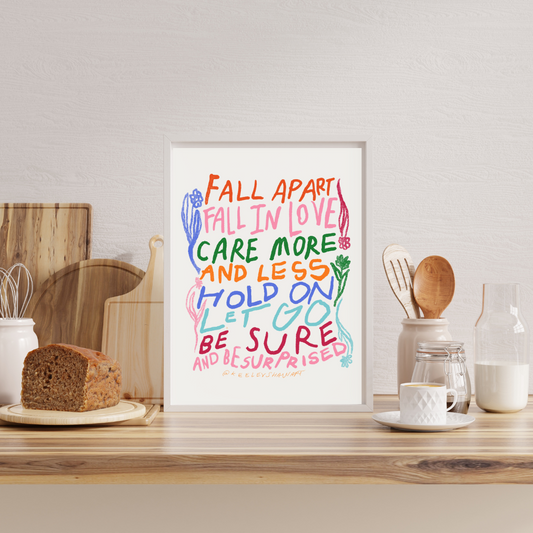 FALL APART
FALL IN LOVE
CARE MORE
AND LESS
HOLD ON
LET GO
BE SURE
AND BE SURPRISED